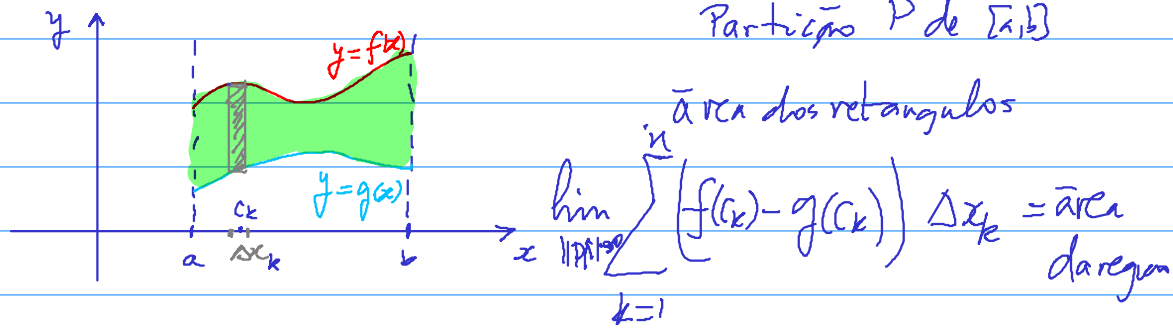 y
y=f(x)
y=g(x)
a
c_k
Δx_k
b
x
Partição P de [a,b]
área dos retangulos
lim_{||P||→0} \sum_{k=1}^{n} (f(c_k) - g(c_k)) Δx_k = área
da região